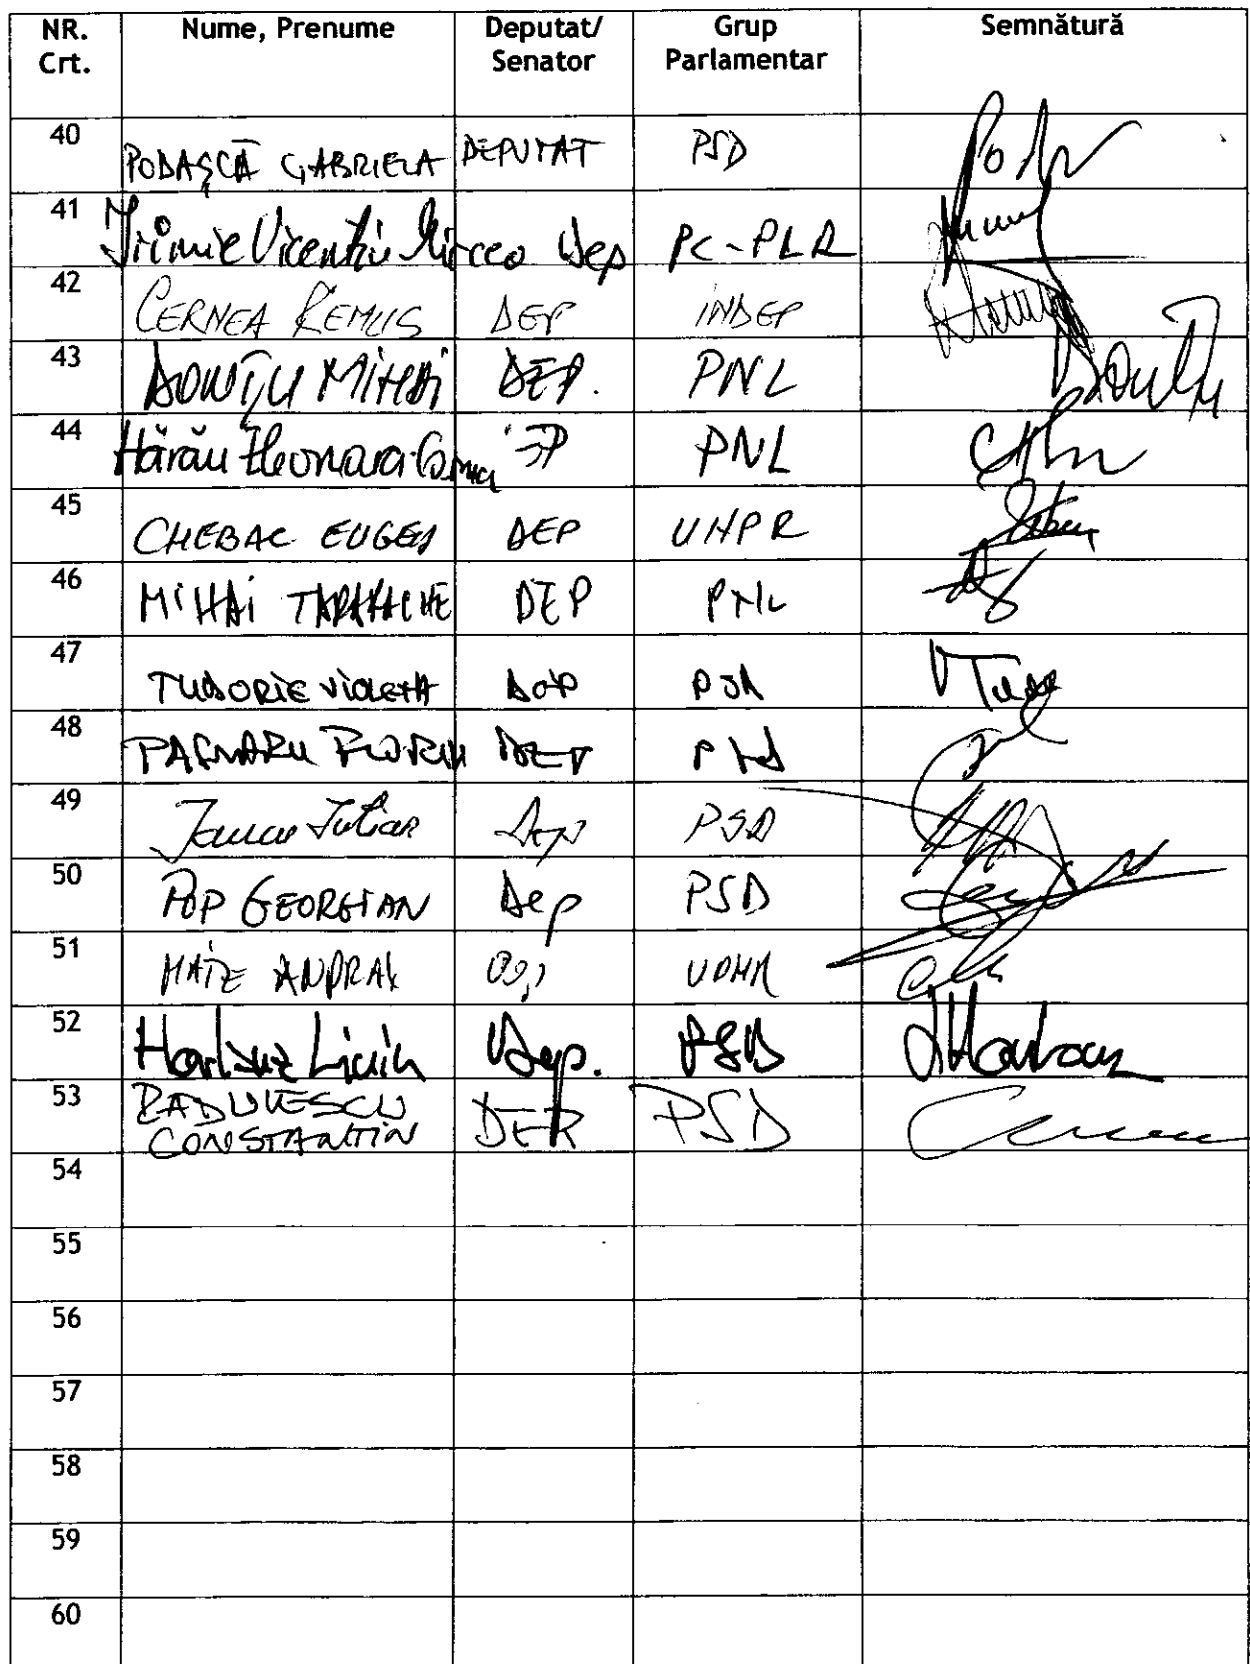 NR. Crt. Nume, Prenume Deputat/ Senator Grup Parlamentar Semnătură
40 PODAŞCĂ GABRIELA DEPUTAT PSD
41 Irimie Vicențiu Mircea Dep PC-PLR
42 CERNEA REMUS DEP INDEP
43 DONŢU MIHAI DEP. PNL
44 Hărău Eleonora PNL
45 CHEBAC EUGEN DEP
46 MIHAI TARARACHE DEP PNL
47 TUDORIE VIOLETA
48 FLORIN DEP
49 Iancu Iulian Dep PSD
50 POP GEORGIAN Dep PSD
51 MATE ANDRAS UDMR
52 Harbuz Liviu Dep. PSD
53 RADULESCU
CONSTANTIN DEP PSD
54
55
56
57
58
59
60